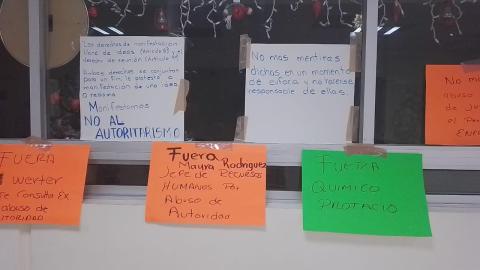 Los derechos de manifestación
libre de ideas (Artículo 6) y el
derecho de reunión (Artículo 9)
Ambos derechos se conjuntan
para un fin, la protesta o
manifestación de una idea
o reclamo
Manifestamos
NO AL
AUTORITARISMO
No mas mentiras
dichas en un momento
de euforia y no
responsable de ellas.
No m
abuso
de
el
FUERA
werter
Consulta Ex
abuso de
AUTORIDAD
Fuera
Mayra Rodriguez
Jefe de Recursos
Humanos Por
Abuso de
Autoridad
FUERA
QUIMICO
PROTACIO